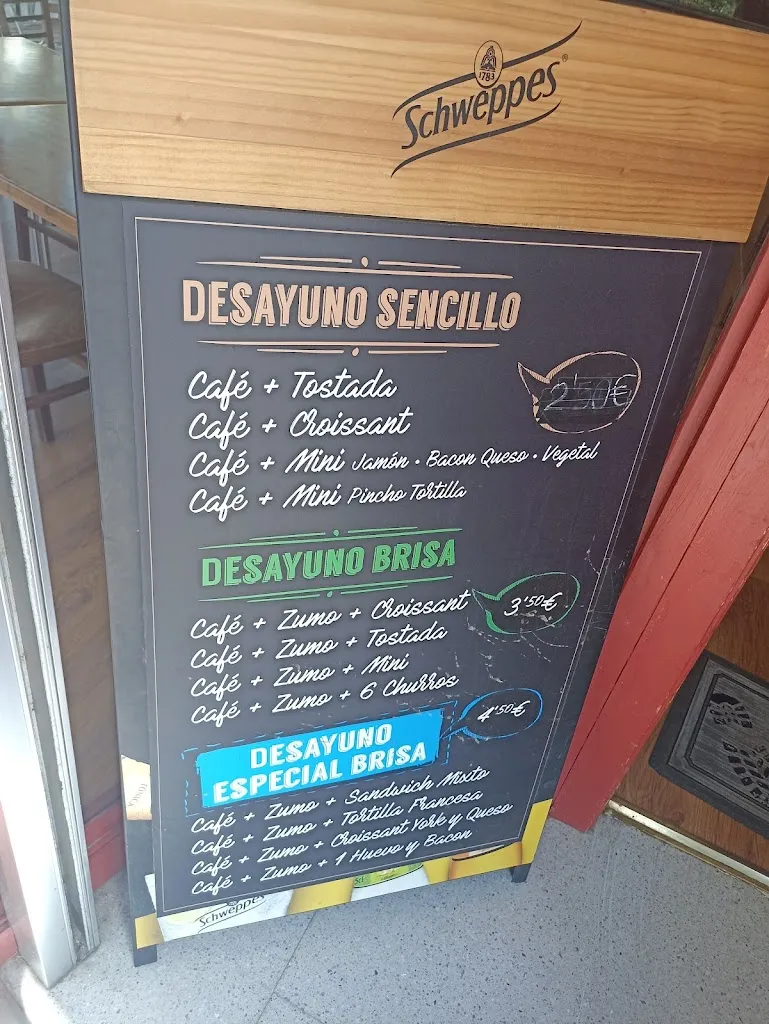 1783
Schweppes
DESAYUNO SENCILLO
Café + Tostada
Café + Croissant
Café + Mini Jamón · Bacon Queso · Vegetal
Café + Mini Pincho Tortilla
2'50€
DESAYUNO BRISA
Café + Zumo + Croissant
Café + Zumo + Tostada
Café + Zumo + Mini
Café + Zumo + 6 Churros
3'50€
DESAYUNO
ESPECIAL BRISA
4'50€
Café + Zumo + Sandwich Mixto
Café + Zumo + Tortilla Francesa
Café + Zumo + Croissant York y Queso
Café + Zumo + 1 Huevo y Bacon
Schweppes